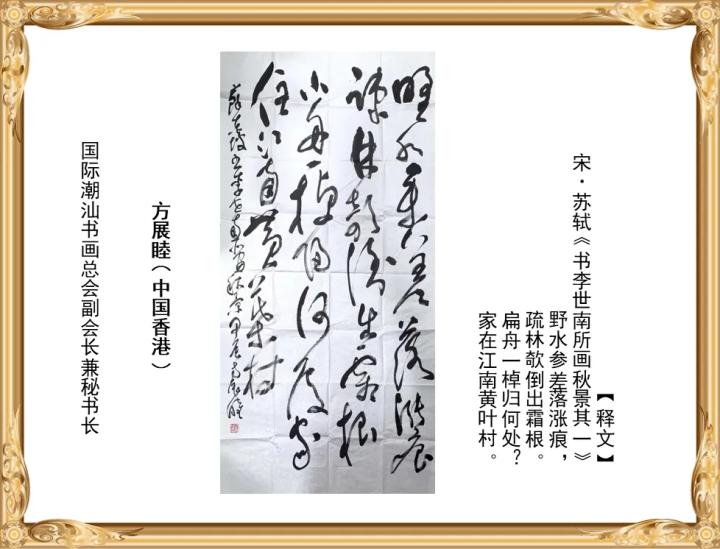 【释文】
宋·苏轼《书李世南所画秋景其一》
野水参差落涨痕，
疏林欹倒出霜根。
扁舟一棹归何处？
家在江南黄叶村。
野水参差落涨痕
疎林欹倒出霜根
小舟一棹归何处家
住江南黄叶村
方展睦（中国香港）
国际潮汕书画总会副会长兼秘书长